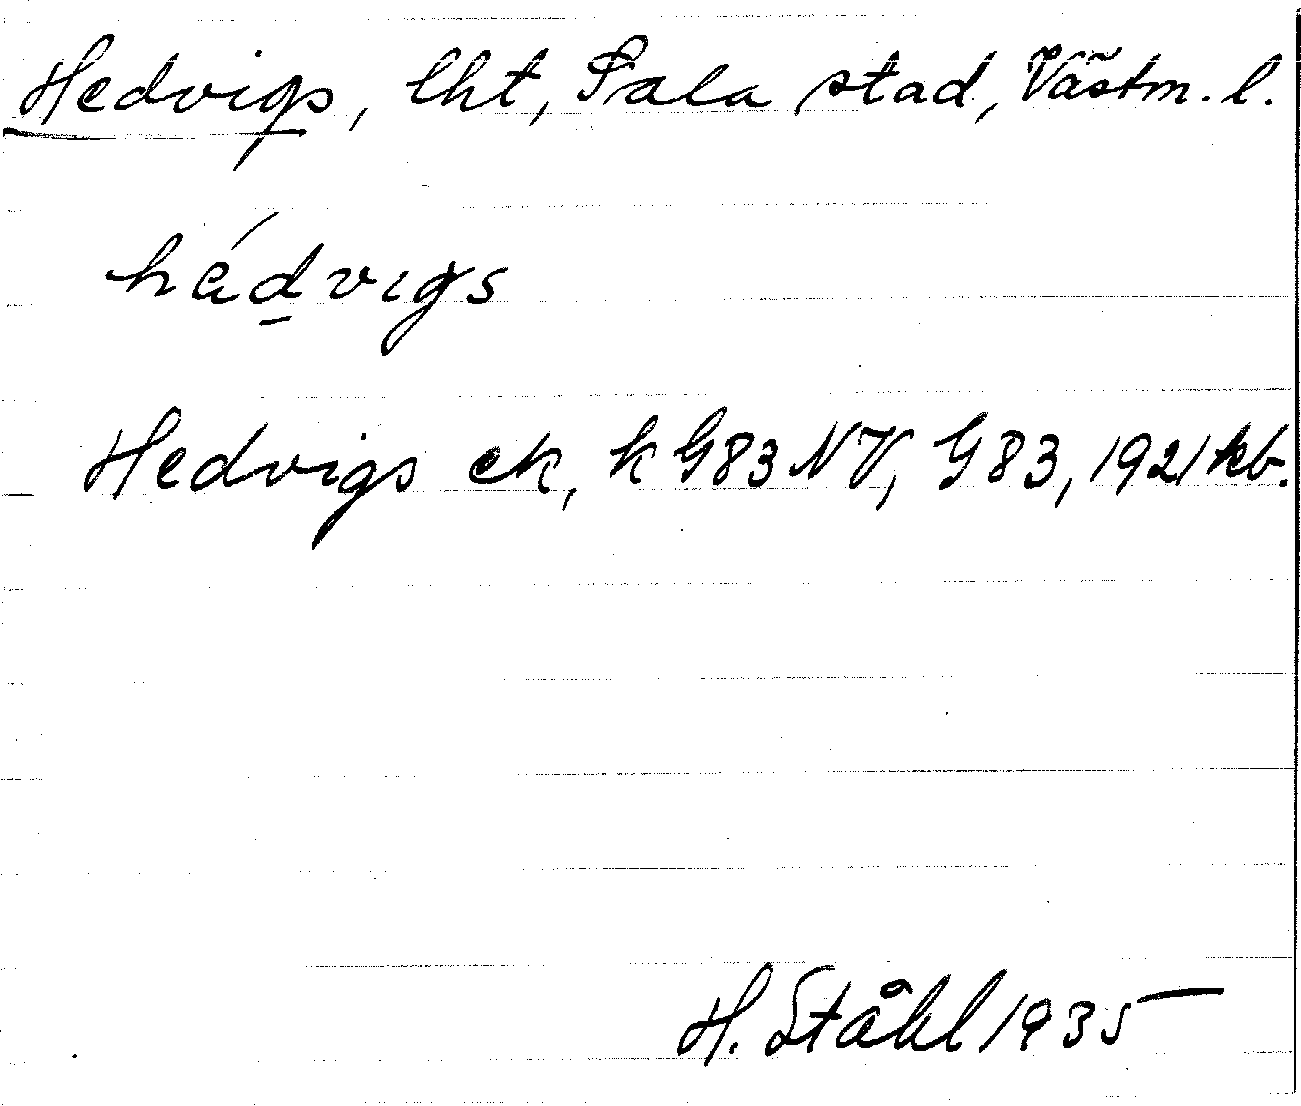 Hedvigs, lht, Sala stad, Västm. l.
hédvigs
Hedvigs ek, k G83 NV, G 83, 1921 kb.
H. Ståhl 1935